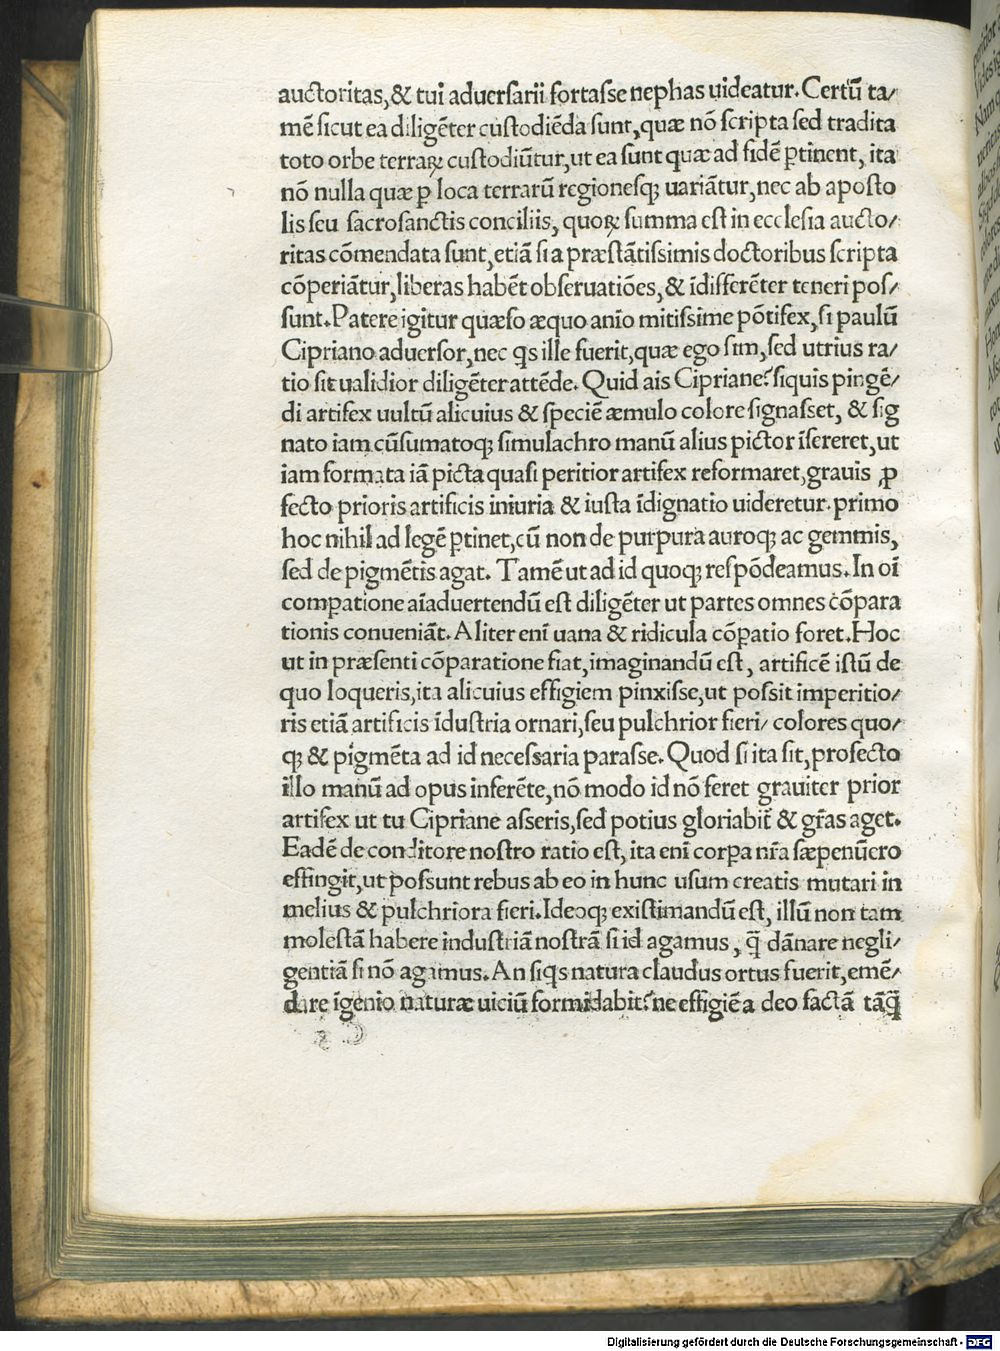 auctoritas,& tui aduersarii fortasse nephas uideatur. Certũ ta/
mẽ sicut ea diligẽter custodiẽda sunt, quæ nõ scripta sed tradita
toto orbe terraꝝ custodiũtur, ut ea sunt quæ ad fidẽ ꝑtinent, ita
nõ nulla quæ ꝑ loca terrarũ regionesqꝫ uariãtur, nec ab aposto
lis seu sacrosanctis conciliis, quoꝝ summa est in ecclesia aucto/
ritas cõmendata sunt, etiã si a præstãtissimis doctoribus scripta
cõperiãtur, liberas habẽt obseruatiões, & ĩdifferẽter teneri pos/
sunt. Patere igitur quæso æquo anĩo mitissime põtifex, si paulũ
Cipriano aduersor, nec ꝗs ille fuerit, quæ ego sim, sed utrius ra/
tio sit ualidior diligẽter attẽde. Quid ais Cipriane? siquis pingẽ/
di artifex uultũ alicuius & speciẽ æmulo colore signasset, & sig
nato iam cũsumatoqꝫ simulachro manũ alius pictor ĩsereret, ut
iam formata iã picta quasi peritior artifex reformaret, grauis ꝓ
fecto prioris artificis iniuria & iusta ĩdignatio uideretur. primo
hoc nihil ad legẽ ꝑtinet, cũ non de purpura auroqꝫ ac gemmis,
sed de pigmẽtis agat. Tamẽ ut ad id quoqꝫ respõdeamus. In oĩ
comꝑatione aĩaduertendũ est diligẽter ut partes omnes cõpara
tionis conueniãt. Aliter enĩ uana & ridicula cõꝑatio foret. Hoc
ut in præsenti cõparatione fiat, imaginandũ est, artificẽ istũ de
quo loqueris, ita alicuius effigiem pinxisse, ut possit imperitio/
ris etiã artificis ĩdustria ornari, seu pulchrior fieri/ colores quo/
qꝫ & pigmẽta ad id necessaria parasse. Quod si ita sit, profecto
illo manũ ad opus inferẽte, nõ modo id nõ feret grauiter prior
artifex ut tu Cipriane asseris, sed potius gloriabit̃ & gr̃as aget.
Eadẽ de conditore nostro ratio est, ita enĩ corꝑa nr̃a sæpenũero
effingit, ut possunt rebus ab eo in hunc usum creatis mutari in
melius & pulchriora fieri. Ideoqꝫ existimandũ est, illũ non tam
molestã habere industriã nostrã si id agamus, q̃ dãnare negli/
gentiã si nõ agamus. An siꝗs natura claudus ortus fuerit, emẽ/
dare ĩgenio naturæ uiciũ formidabit? ne effigiẽ a deo factã tãq̃
Digitalisierung gefördert durch die Deutsche Forschungsgemeinschaft - DFG